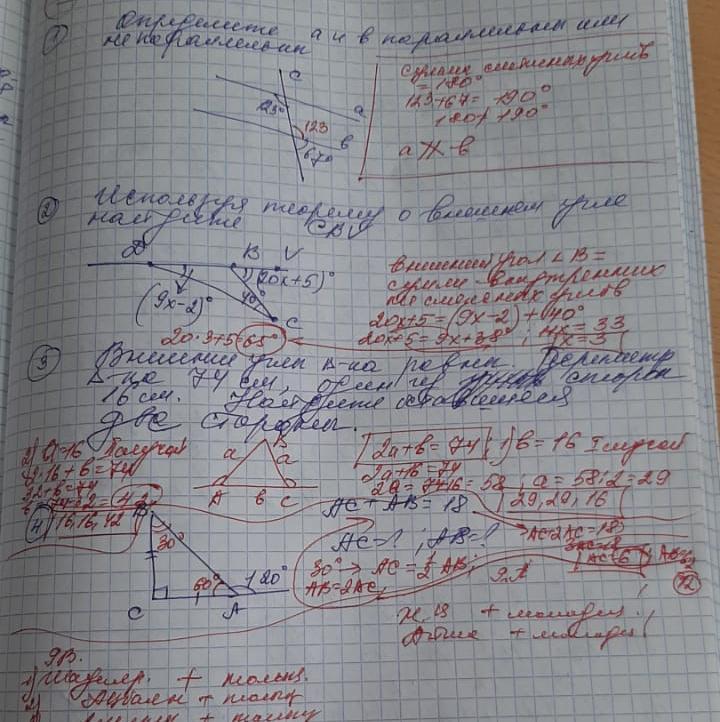 ① Определите а и в параллельны или
непараллельны
c
a
в
123
67°
сумма смежных углов
= 180°
123+67= 190°
180≠190°
a ∦ в
② Используя теорему о внешнем угле
найдите CBV
D B V
(9x-2)°
(20x+5)°
40°
C
внешний угол ∠B =
сумме внутренних
не смежных углов
20x+5 = (9x-2) + 40°
20x+5 = 9x+38°; 11x = 33
x=3
20·3+5=65°
③ Внешние углы Δ-ка равны. Периметр
Δ-ка 74 см, один из сторон
16 см. Найдите оставшиеся
две стороны.
2a+b=74 1) b=16 I случай
2a+16=74
2a=74-16=58, a=58:2=29
29, 29, 16
2) a=16
2·16+b=74
32+b=74
16, 16, 42
a a
A b C
④
B
30°
60°
120°
C A
AC + AB = 18
AC=? ; AB=?
30° → AC = 1/2 AB;
AB=2AC,
AC+2AC=18
AC=6
12
+ молодец
+ молодец!
9В.
1) + толық
2) + толық
+ толық